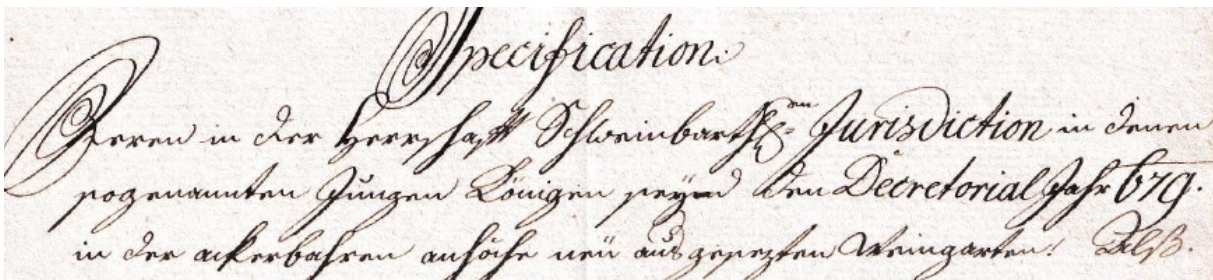 Specification.
Deren in der Herrschafft Schweinbarth en Jurisdiction in denen
sogenannten Jungen Königen seynd den Decretorial Jahr 679.
in der ackerbahren anhöche neü ausgesezten Weingarten: Alß.